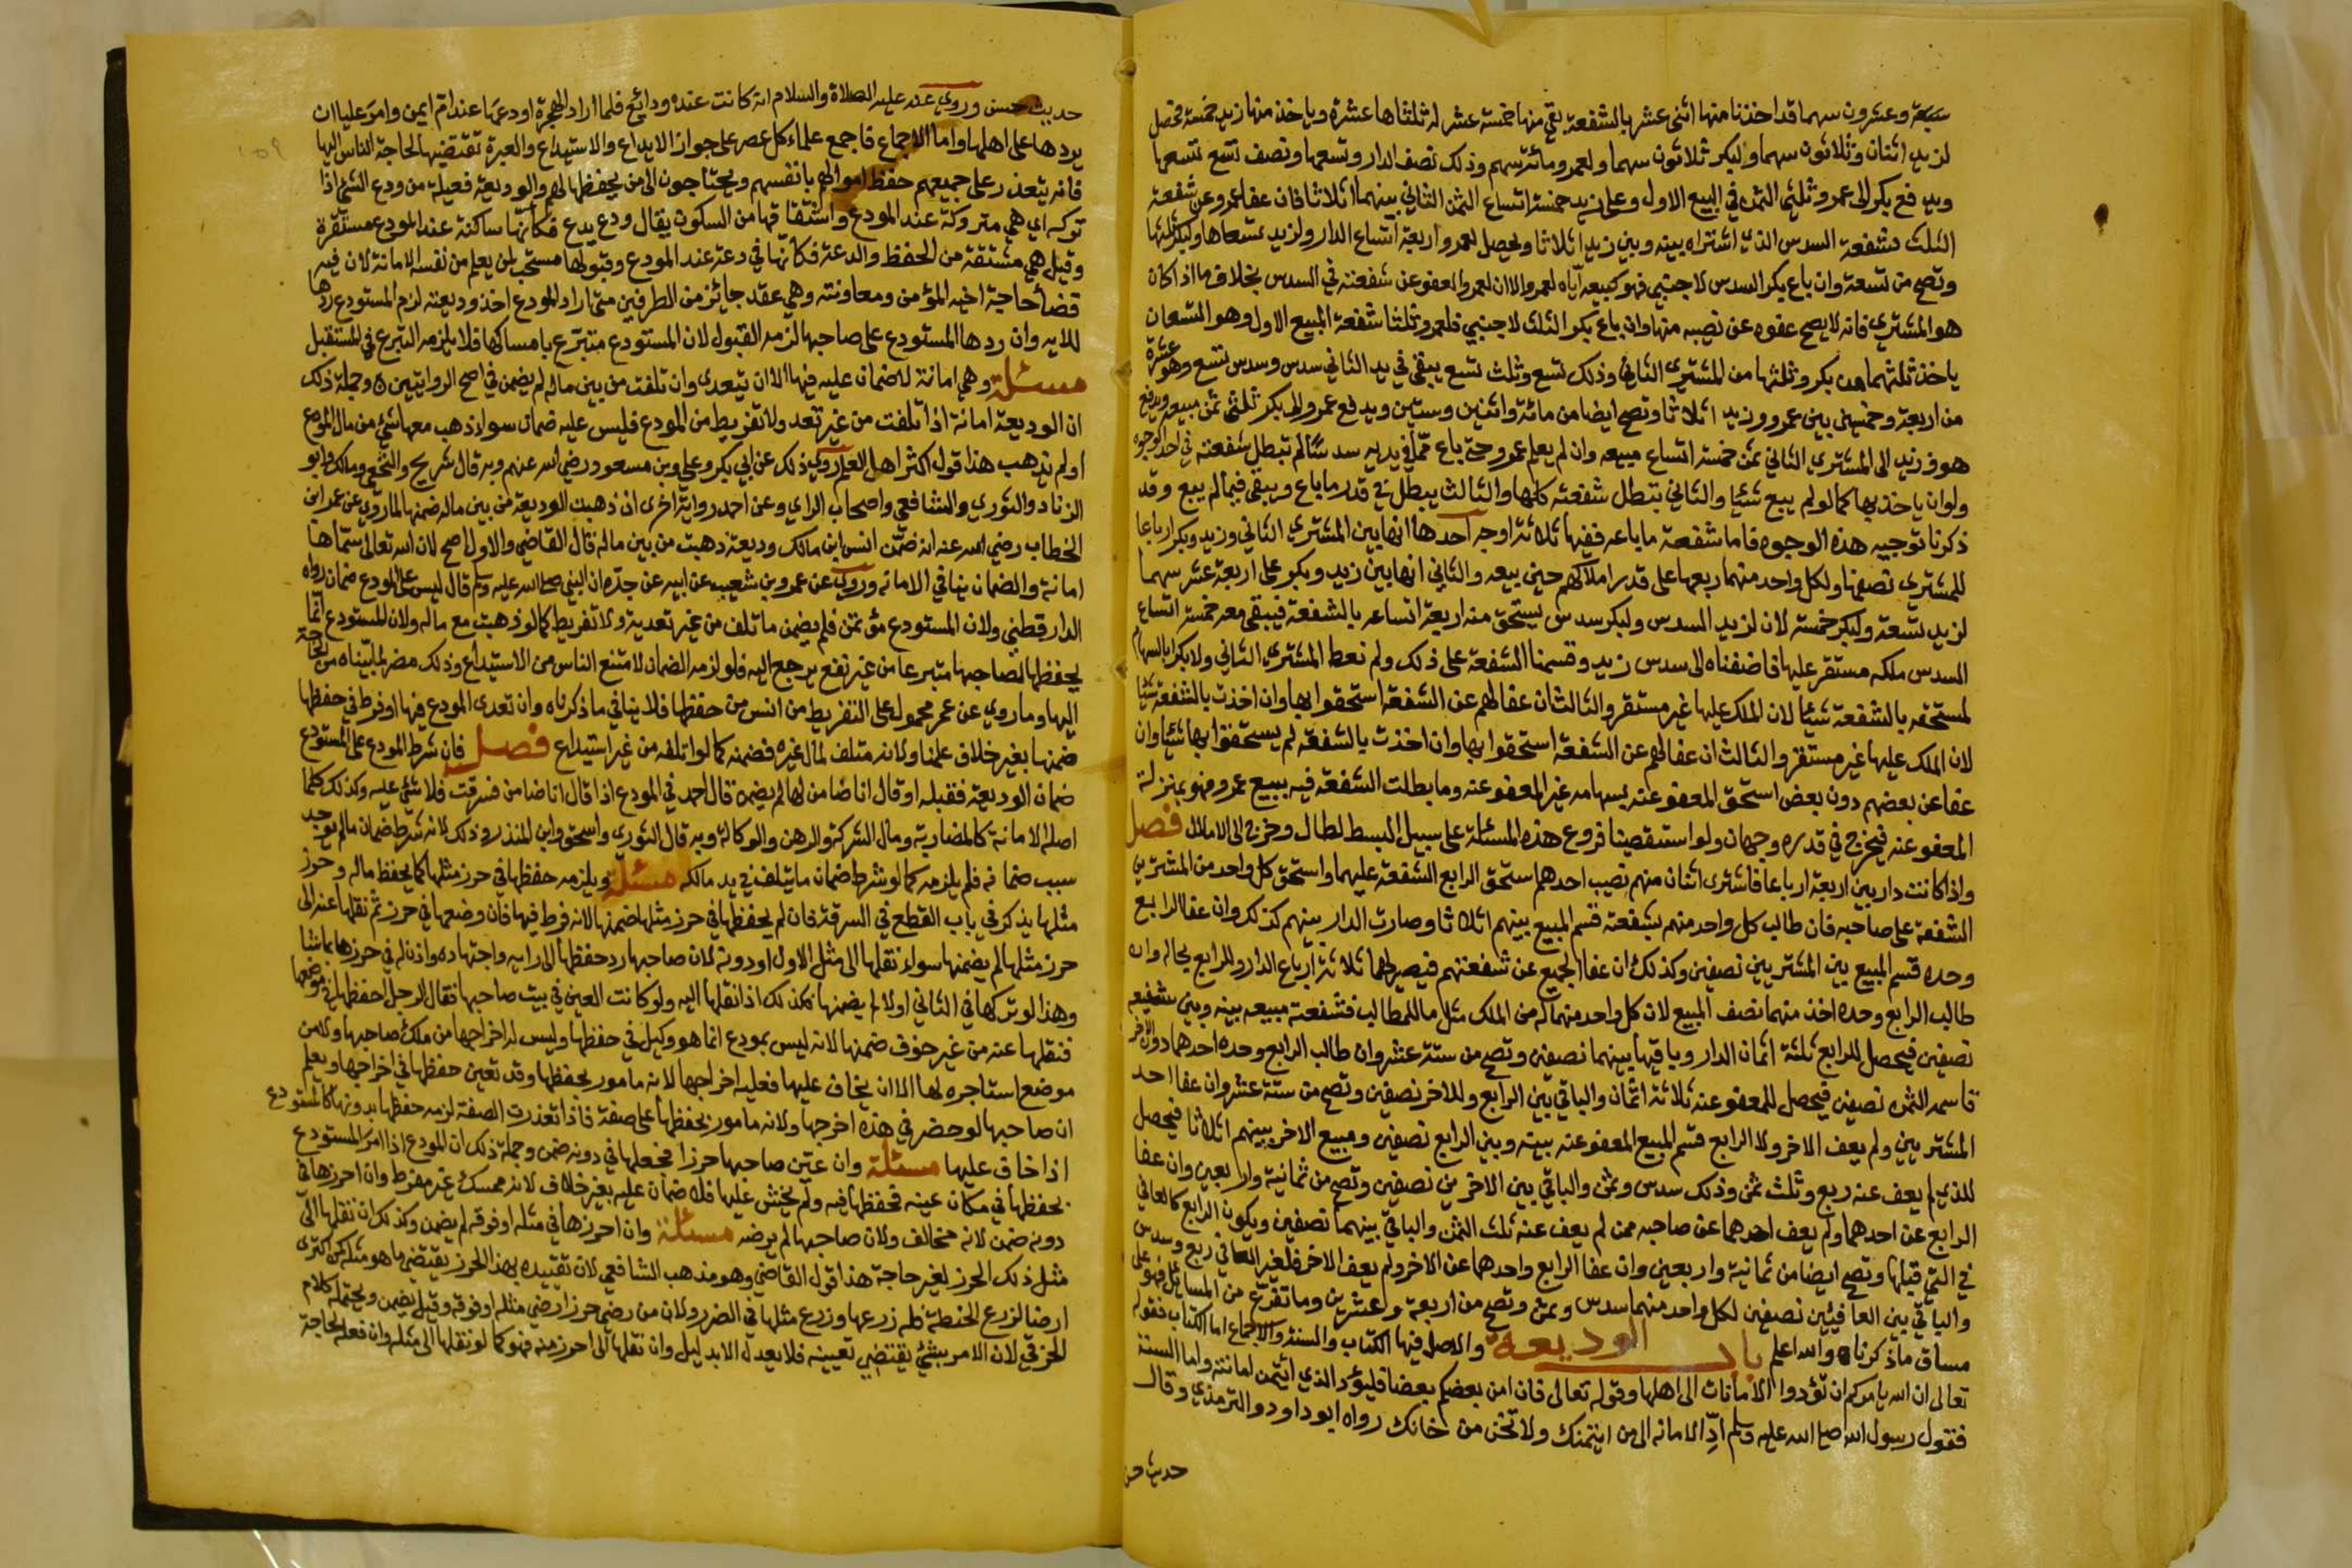 سبعة وعشرون سهما قد اخذنا منها اثنى عشر بالشفعة بقي منها خمسة عشر له ثلثاها عشرة وياخذ منها زيد خمسة فحصل
لزيد اثنان وثلاثون سهما ولبكر ثلاثون سهما ولعمرو مائة سهم وذلك نصف الدار وتسعها ونصف تسع تسعها
ويدفع بكر الى عمرو ثلثي الثمن في البيع الاول وعلى زيد خمسة اتساع الثمن الثاني بينهما اثلاثا فان عفا عمرو عن شفعة
الثلث فشفعة السدس الذي اشتراه بينه وبين زيد اثلاثا ويحصل لعمرو اربعة اتساع الدار ولزيد تسعاها ولبكر ثلثها
وتصح من تسعة وان باع بكر السدس لاجنبي فهو كبيعه اياه لعمرو الا ان لعمرو العفو عن شفعته في السدس بخلاف ما اذا كان
هو المشتري فانه لا يصح عفوه عن نصيبه منها وان باع بكر الثلث لاجنبي فلعمرو ثلثا شفعة المبيع الاول وهو التسعان
ياخذ ثلثهما من بكر وثلثيهما من المشتري الثاني وذلك تسع وثلث تسع يبقى في يد الثاني سدس وسدس تسع وهو عشرة
من اربعة وخمسين بين عمرو وزيد اثلاثا وتصح ايضا من مائة واثنين وستين ويدفع عمرو الى بكر ثلثي ثمن مبيعه ويدفع
هو وزيد الى المشتري الثاني ثمن خمسة اتساع مبيعه وان لم يعلم عمرو حتى باع مما في يديه سدسا لم تبطل شفعته في احد الوجوه
وله ان ياخذ بها كما لو لم يبع شيئا والثاني تبطل شفعته كلها والثالث يبطل في قدر ما باع ويبقى فيما لم يبع وقد
ذكرنا توجيه هذه الوجوه فاما شفعة ما باعه ففيها ثلاثة اوجه احدها انها بين المشتري الثاني وزيد وبكر ارباعا
للمشتري نصفها ولكل واحد منهما ربعها على قدر املاكهم حين بيعه والثاني انها بين زيد وبكر على اربعة عشر سهما
لزيد تسعة ولبكر خمسة لان لزيد السدس ولبكر سدس يستحق منه اربعة اتساعه بالشفعة فيبقى معه خمسة اتساع
السدس ملكه مستقر عليها فاضفناه الى سدس زيد وقسمنا الشفعة على ذلك ولم نعط المشتري الثاني ولا بكرا بالسهام
لمستحقه بالشفعة شيئا لان الملك عليها غير مستقر والثالث ان عفا لهم عن الشفعة استحقوا بها وان اخذت بالشفعة شيئا
لان الملك عليها غير مستقر والثالث ان عفا لهم عن الشفعة استحقوا بها وان اخذت بالشفعة لم يستحقوا بها شيئا وان
عفا عن بعضهم دون بعض استحق المعفو عنه بسهامه غير المعفو عنه وما بطلت الشفعة فيه ببيع عمرو فهو بمنزلة
المعفو عنه فيخرج في قدره وجهان ولو استقصينا فروع هذه المسئلة على سبيل البسط لطال وخرج الى الاملال فصل
واذا كانت دار بين اربعة ارباعا فاشترى اثنان منهم نصيب احدهم استحق الرابع الشفعة عليهما واستحق كل واحد من المشتريين
الشفعة على صاحبه فان طالب كل واحد منهم بشفعته قسم المبيع بينهم اثلاثا وصارت الدار بينهم كذلك وان عفا الرابع
وحده قسم المبيع بين المشتريين نصفين وكذلك ان عفا الجميع عن شفعتهم فيصير لهما ثلاثة ارباع الدار وللرابع بحاله وان
طالب الرابع وحده اخذ منهما نصف المبيع لان كل واحد منهما له من الملك مثل ما للمطالب فشفعة مبيعه بينه وبين شفيعه
نصفين فيحصل للرابع ثلثة اثمان الدار وباقيها بينهما نصفين وتصح من ستة عشر وان طالب الرابع وحده احدهما دون الاخر
قاسمه الثمن نصفين فيحصل للمعفو عنه ثلاثة اثمان والباقي بين الرابع وللاخر نصفين وتصح من ستة عشر وان عفا احد
المشتريين ولم يعف الاخر ولا الرابع قسم المبيع المعفو عنه بينه وبين الرابع نصفين ومبيع الاخر بينهم اثلاثا فيحصل
للذي لم يعف عنه ربع وثلث ثمن وذلك سدس وثمن والباقي بين الاخرين نصفين وتصح من ثمانية واربعين وان عفا
الرابع عن احدهما ولم يعف احدهما عن صاحبه ممن لم يعف عنه ثلث الثمن والباقي بينهما نصفين ويكون الرابع كالعافي
في التي قبلها وتصح ايضا من ثمانية واربعين وان عفا الرابع واحدهما عن الاخر ولم يعف الاخر فلغير العافي ربع وسدس
والباقي بين العافيين نصفين لكل واحد منهما سدس وثمن وتصح من اربعة وعشرين وما تفرع من المسايل فهو على
مساق ما ذكرنا والله اعلم باب الوديعة والاصل فيها الكتاب والسنة والاجماع اما الكتاب فقوله
تعالى ان الله يامركم ان تؤدوا الامانات الى اهلها وقوله تعالى فان امن بعضكم بعضا فليؤد الذي ائتمن امانته واما السنة
فقول رسول الله صلى الله عليه وسلم اد الامانه الى من ايتمنك ولا تخن من خانك رواه ابو داود والترمذي وقال
حديث حسن
حديث حسن وروي عنه عليه الصلاة والسلام انه كانت عنده ودايع فلما اراد الهجرة اودعها عند ام ايمن وامر عليا ان
يردها على اهلها واما الاجماع فاجمع علماء كل عصر على جواز الايداع والاستيداع والعبرة تقتضيها لحاجة الناس اليها
فانه يتعذر على جميعهم حفظ اموالهم بانفسهم ويحتاجون الى من يحفظها لهم والوديعة فعيلة من ودع الشئ اذا
تركه اي هي متروكة عند المودع واشتقاقها من السكون يقال ودع يدع فكانها ساكنة عند المودع مستقرة
وقيل هي مشتقة من الحفظ والدعة فكانها في دعة عند المودع وقبولها مستحب لمن يعلم من نفسه الامانة لان فيه
قضا حاجة اخيه المؤمن ومعاونته وهي عقد جايز من الطرفين متى اراد المودع اخذ وديعته لزم المستودع ردها
للايه وان ردها المستودع على صاحبها لزمه القبول لان المستودع متبرع بامساكها فلا يلزمه التبرع في المستقبل
مسئلة وهي امانة لا ضمان عليه فيها الا ان يتعدى وان تلفت من بين ماله لم يضمن في اصح الروايتين وجملة ذلك
ان الوديعة امانة اذا تلفت من غير تعد ولا تفريط من المودع فليس عليه ضمان سواء ذهب معها شئ من مال المودع
او لم يذهب هذا قول اكثر اهل العلم روي ذلك عن ابي بكر وعلي وبن مسعود رضي الله عنهم وبه قال شريح والنخعي ومالك وابو
الزناد والثوري والشافعي واصحاب الراي وعن احمد رواية اخرى ان ذهبت الوديعة من بين ماله ضمنها لما روي عن عمر ابن
الخطاب رضي الله عنه انه ضمن انس ابن مالك وديعة ذهبت من بين ماله قال القاضي والاول اصح لان الله تعالى سماها
امانة والضمان ينافي الامانه وروي عن عمرو بن شعيب عن ابيه عن جده ان النبي صلى الله عليه وسلم قال ليس على المودع ضمان رواه
الدارقطني ولان المستودع مؤتمن فلم يضمن ما تلف من غير تعديه ولا تفريط كما لو ذهبت مع ماله ولان المستودع انما
يحفظها لصاحبها متبرعا من غير نفع يرجع اليه فلو لزمه الضمان لامتنع الناس من الاستيداع وذلك مضر لما بيناه من الحاجة
اليها وما روي عن عمر محمول على التفريط من انس من حفظها فلا ينافي ما ذكرناه وان تعدى المودع فيها او فرط في حفظها
ضمنها بغير خلاف علمنا ولانه متلف لمال غيره فضمنه كما لو اتلفه من غير استيداع فصل فان شرط المودع على المستودع
ضمان الوديعة فقبله او قال انا ضامن لها لم يضمن قال احمد في المودع اذا قال انا ضامن فسرقت فلا شئ عليه وكذلك كلما
اصله الامانة كالمضاربة ومال الشركة والرهن والوكالة وبه قال الثوري واسحق وابن المنذر وذلك لانه شرط ضمان ما لم يوجد
سبب ضمانه فلم يلزمه كما لو شرط ضمان ما يتلف في يد مالكه مسئلة ويلزمه حفظها في حرز مثلها كما يحفظ ماله وحرز
مثلها يذكر في باب القطع في السرقة فان لم يحفظها في حرز مثلها ضمنها لانه فرط فيها فان وضعها في حرز ثم نقلها عنه الى
حرز مثلها لم يضمنها سواء نقلها الى مثل الاول او دونه لان صاحبها رد حفظها الى رايه واجتهاده واذن له في حرزها بما شا
وهذا لو تركها في الثاني اولا لم يضمنها فكذلك اذا نقلها اليه ولو كانت العين في بيت صاحبها فقال لرجل احفظها في موضعها
فنقلها عنه من غير خوف ضمنها لانه ليس بمودع انما هو وكيل في حفظها وليس له اخراجها من ملك صاحبها ولا من
موضع استاجره لها الا ان يخاف عليها فعليه اخراجها لانه مامور بحفظها وقد تعين حفظها في اخراجها ويعلم
ان صاحبها لو حضر في هذه اخرجها ولانه مامور بحفظها على صفة فاذا تعذرت الصفة لزمه حفظها بدونها كالمستودع
اذا خاف عليها مسئلة وان عين صاحبها حرزا فجعلها في دونه ضمن وجملة ذلك ان المودع اذا امر المستودع
بحفظها في مكان عينه فحفظها فيه ولم يخش عليها فلا ضمان عليه بغير خلاف لانه ممسك غير مفرط وان احرزها في
دونه ضمن لانه مخالف ولان صاحبها لم يرضه مسئلة وان احرزها في مثله او فوقه لم يضمن وكذلك ان نقلها الى
مثل ذلك الحرز لغير حاجة هذا قول القاضي وهو مذهب الشافعي لان تقييده بهذا الحرز يقتضي ما هو مثله كمن اكترى
ارضا لزرع الحنطة فله زرعها وزرع مثلها في الضرر ولان من رضي حرزا رضي مثله او فوقه وقيل يضمن ويحتمله كلام
الخرقي لان الامر بشئ يقتضي تعيينه فلا يعدل الا بدليل وان نقلها الى احرز منه فهو كما لو نقلها الى مثله وان فعله لحاجة